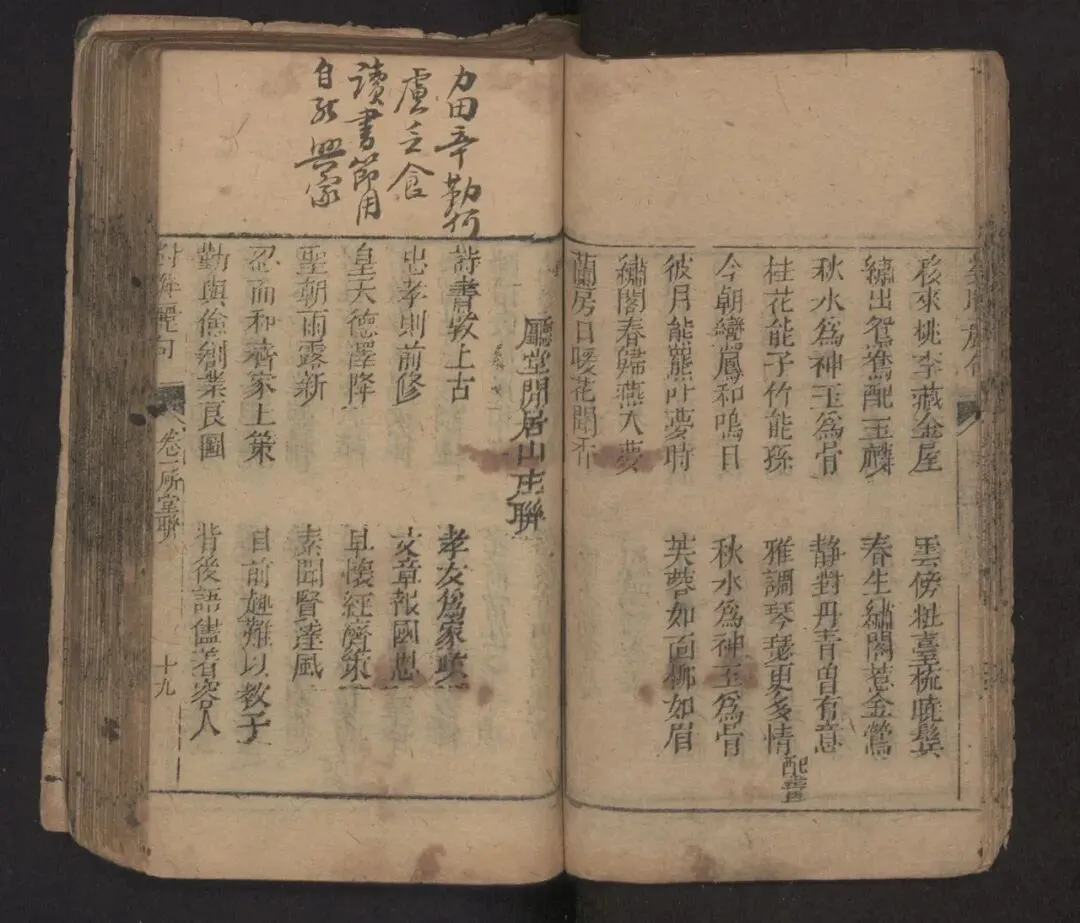 移來桃李藏金屋
雲傍粧臺梳曉鬟
繡出鴛鴦配玉麟
春生繡閣惹金鶯
秋水為神玉為骨
靜對丹青曽有意
桂花能子竹能孫
雅調琴瑟更多情
配書
今朝鸞鳳和鳴日
秋水為神玉為骨
彼月能羆叶夢時
芙蓉如面柳如眉
繡閣春歸燕入夢
蘭房日暖花聞香
廳堂閒居山庄聯
詩書敦上古
孝友為家
忠孝則前修
文章報國恩
皇天德澤降
早懷經濟策
聖朝雨露新
素聞賢達風
忍而和齊家上策
目前趣難以教子
勤與儉創業良圖
背後語儘著容人
對聯麗句
卷一
堂聯
十九
力田辛勤何
慮乏食
讀書節用
自能興家